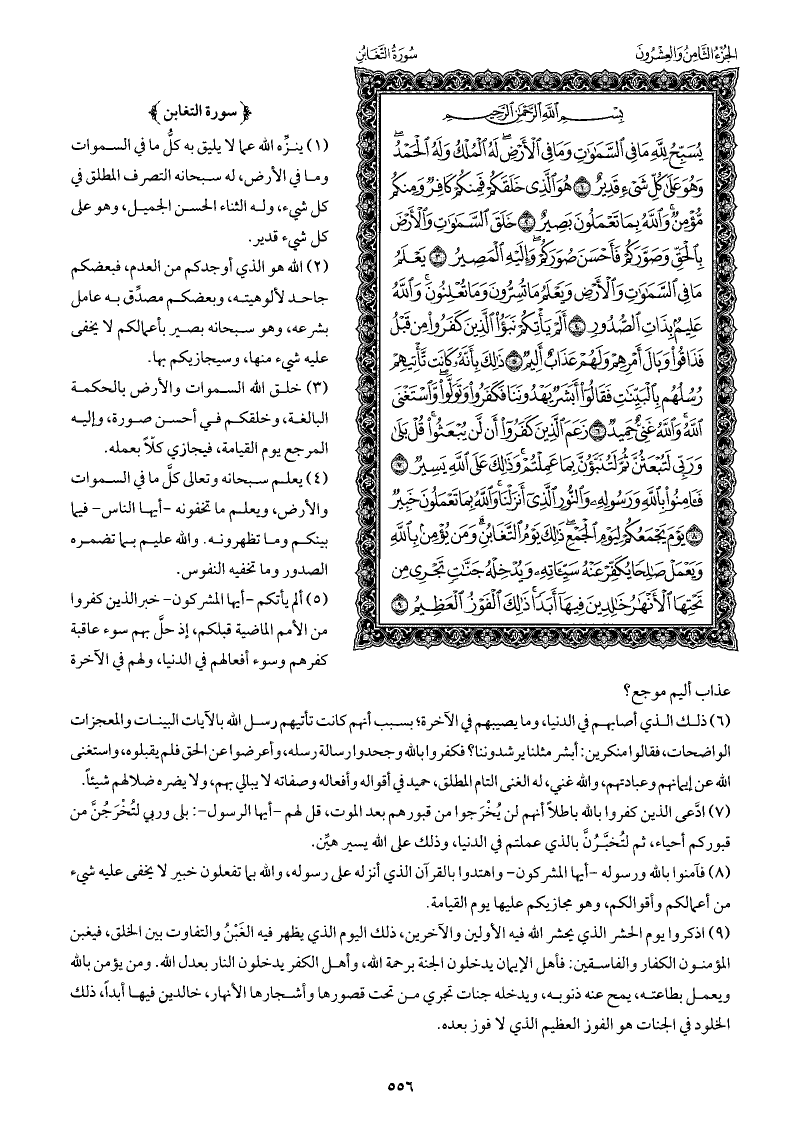 الجزء الثامن والعشرون
سورة التغابن
بِسْمِ اللَّهِ الرَّحْمَٰنِ الرَّحِيمِ
يُسَبِّحُ لِلَّهِ مَا فِي السَّمَاوَاتِ وَمَا فِي الْأَرْضِ ۖ لَهُ الْمُلْكُ وَلَهُ الْحَمْدُ ۖ
وَهُوَ عَلَىٰ كُلِّ شَيْءٍ قَدِيرٌ ١ هُوَ الَّذِي خَلَقَكُمْ فَمِنكُمْ كَافِرٌ وَمِنكُم
مُّؤْمِنٌ ۚ وَاللَّهُ بِمَا تَعْمَلُونَ بَصِيرٌ ٢ خَلَقَ السَّمَاوَاتِ وَالْأَرْضَ
بِالْحَقِّ وَصَوَّرَكُمْ فَأَحْسَنَ صُوَرَكُمْ ۖ وَإِلَيْهِ الْمَصِيرُ ٣ يَعْلَمُ
مَا فِي السَّمَاوَاتِ وَالْأَرْضِ وَيَعْلَمُ مَا تُسِرُّونَ وَمَا تُعْلِنُونَ ۚ وَاللَّهُ
عَلِيمٌ بِذَاتِ الصُّدُورِ ٤ أَلَمْ يَأْتِكُمْ نَبَؤُا الَّذِينَ كَفَرُوا مِن قَبْلُ
فَذَاقُوا وَبَالَ أَمْرِهِمْ وَلَهُمْ عَذَابٌ أَلِيمٌ ٥ ذَٰلِكَ بِأَنَّهُ كَانَت تَّأْتِيهِمْ
رُسُلُهُم بِالْبَيِّنَاتِ فَقَالُوا أَبَشَرٌ يَهْدُونَنَا فَكَفَرُوا وَتَوَلَّوا ۚ وَّاسْتَغْنَى
اللَّهُ ۚ وَاللَّهُ غَنِيٌّ حَمِيدٌ ٦ زَعَمَ الَّذِينَ كَفَرُوا أَن لَّن يُبْعَثُوا ۚ قُلْ بَلَىٰ
وَرَبِّي لَتُبْعَثُنَّ ثُمَّ لَتُنَبَّؤُنَّ بِمَا عَمِلْتُمْ ۚ وَذَٰلِكَ عَلَى اللَّهِ يَسِيرٌ ٧
فَآمِنُوا بِاللَّهِ وَرَسُولِهِ وَالنُّورِ الَّذِي أَنزَلْنَا ۚ وَاللَّهُ بِمَا تَعْمَلُونَ خَبِيرٌ
٨ يَوْمَ يَجْمَعُكُمْ لِيَوْمِ الْجَمْعِ ۖ ذَٰلِكَ يَوْمُ التَّغَابُنِ ۗ وَمَن يُؤْمِن بِاللَّهِ
وَيَعْمَلْ صَالِحًا يُكَفِّرْ عَنْهُ سَيِّئَاتِهِ وَيُدْخِلْهُ جَنَّاتٍ تَجْرِي مِن
تَحْتِهَا الْأَنْهَارُ خَالِدِينَ فِيهَا أَبَدًا ۚ ذَٰلِكَ الْفَوْزُ الْعَظِيمُ ٩
﴿سورة التغابن﴾
(١) ينزِّه الله عما لا يليق به كلُّ ما في السموات
وما في الأرض، له سبحانه التصرف المطلق في
كل شيء، وله الثناء الحسن الجميل، وهو على
كل شيء قدير.
(٢) الله هو الذي أوجدكم من العدم، فبعضكم
جاحد لألوهيته، وبعضكم مصدِّق به عامل
بشرعه، وهو سبحانه بصير بأعمالكم لا يخفى
عليه شيء منها، وسيجازيكم بها.
(٣) خلق الله السموات والأرض بالحكمة
البالغة، وخلقكم في أحسن صورة، وإليه
المرجع يوم القيامة، فيجازي كلّاً بعمله.
(٤) يعلم سبحانه وتعالى كلَّ ما في السموات
والأرض، ويعلم ما تخفونه -أيها الناس- فيما
بينكم وما تظهرونه. والله عليم بما تضمره
الصدور وما تخفيه النفوس.
(٥) ألم يأتكم -أيها المشركون- خبر الذين كفروا
من الأمم الماضية قبلكم، إذ حلَّ بهم سوء عاقبة
كفرهم وسوء أفعالهم في الدنيا، ولهم في الآخرة
عذاب أليم موجع؟
(٦) ذلك الذي أصابهم في الدنيا، وما يصيبهم في الآخرة؛ بسبب أنهم كانت تأتيهم رسل الله بالآيات البينات والمعجزات
الواضحات، فقالوا منكرين: أبشر مثلنا يرشدوننا؟ فكفروا بالله وجحدوا رسالة رسله، وأعرضوا عن الحق فلم يقبلوه، واستغنى
الله عن إيمانهم وعبادتهم، والله غني، له الغنى التام المطلق، حميد في أقواله وأفعاله وصفاته لا يبالي بهم، ولا يضره ضلالهم شيئاً.
(٧) ادَّعى الذين كفروا بالله باطلاً أنهم لن يُخْرَجوا من قبورهم بعد الموت، قل لهم -أيها الرسول-: بلى وربي لتُخْرَجُنَّ من
قبوركم أحياء، ثم لتُخبَّرُنَّ بالذي عملتم في الدنيا، وذلك على الله يسير هيِّن.
(٨) فآمنوا بالله ورسوله -أيها المشركون- واهتدوا بالقرآن الذي أنزله على رسوله، والله بما تفعلون خبير لا يخفى عليه شيء
من أعمالكم وأقوالكم، وهو مجازيكم عليها يوم القيامة.
(٩) اذكروا يوم الحشر الذي يحشر الله فيه الأولين والآخرين، ذلك اليوم الذي يظهر فيه الغَبْنُ والتفاوت بين الخلق، فيغبن
المؤمنون الكفار والفاسقين: فأهل الإيمان يدخلون الجنة برحمة الله، وأهل الكفر يدخلون النار بعدل الله. ومن يؤمن بالله
ويعمل بطاعته، يمح عنه ذنوبه، ويدخله جنات تجري من تحت قصورها وأشجارها الأنهار، خالدين فيها أبداً، ذلك
الخلود في الجنات هو الفوز العظيم الذي لا فوز بعده.
٥٥٦